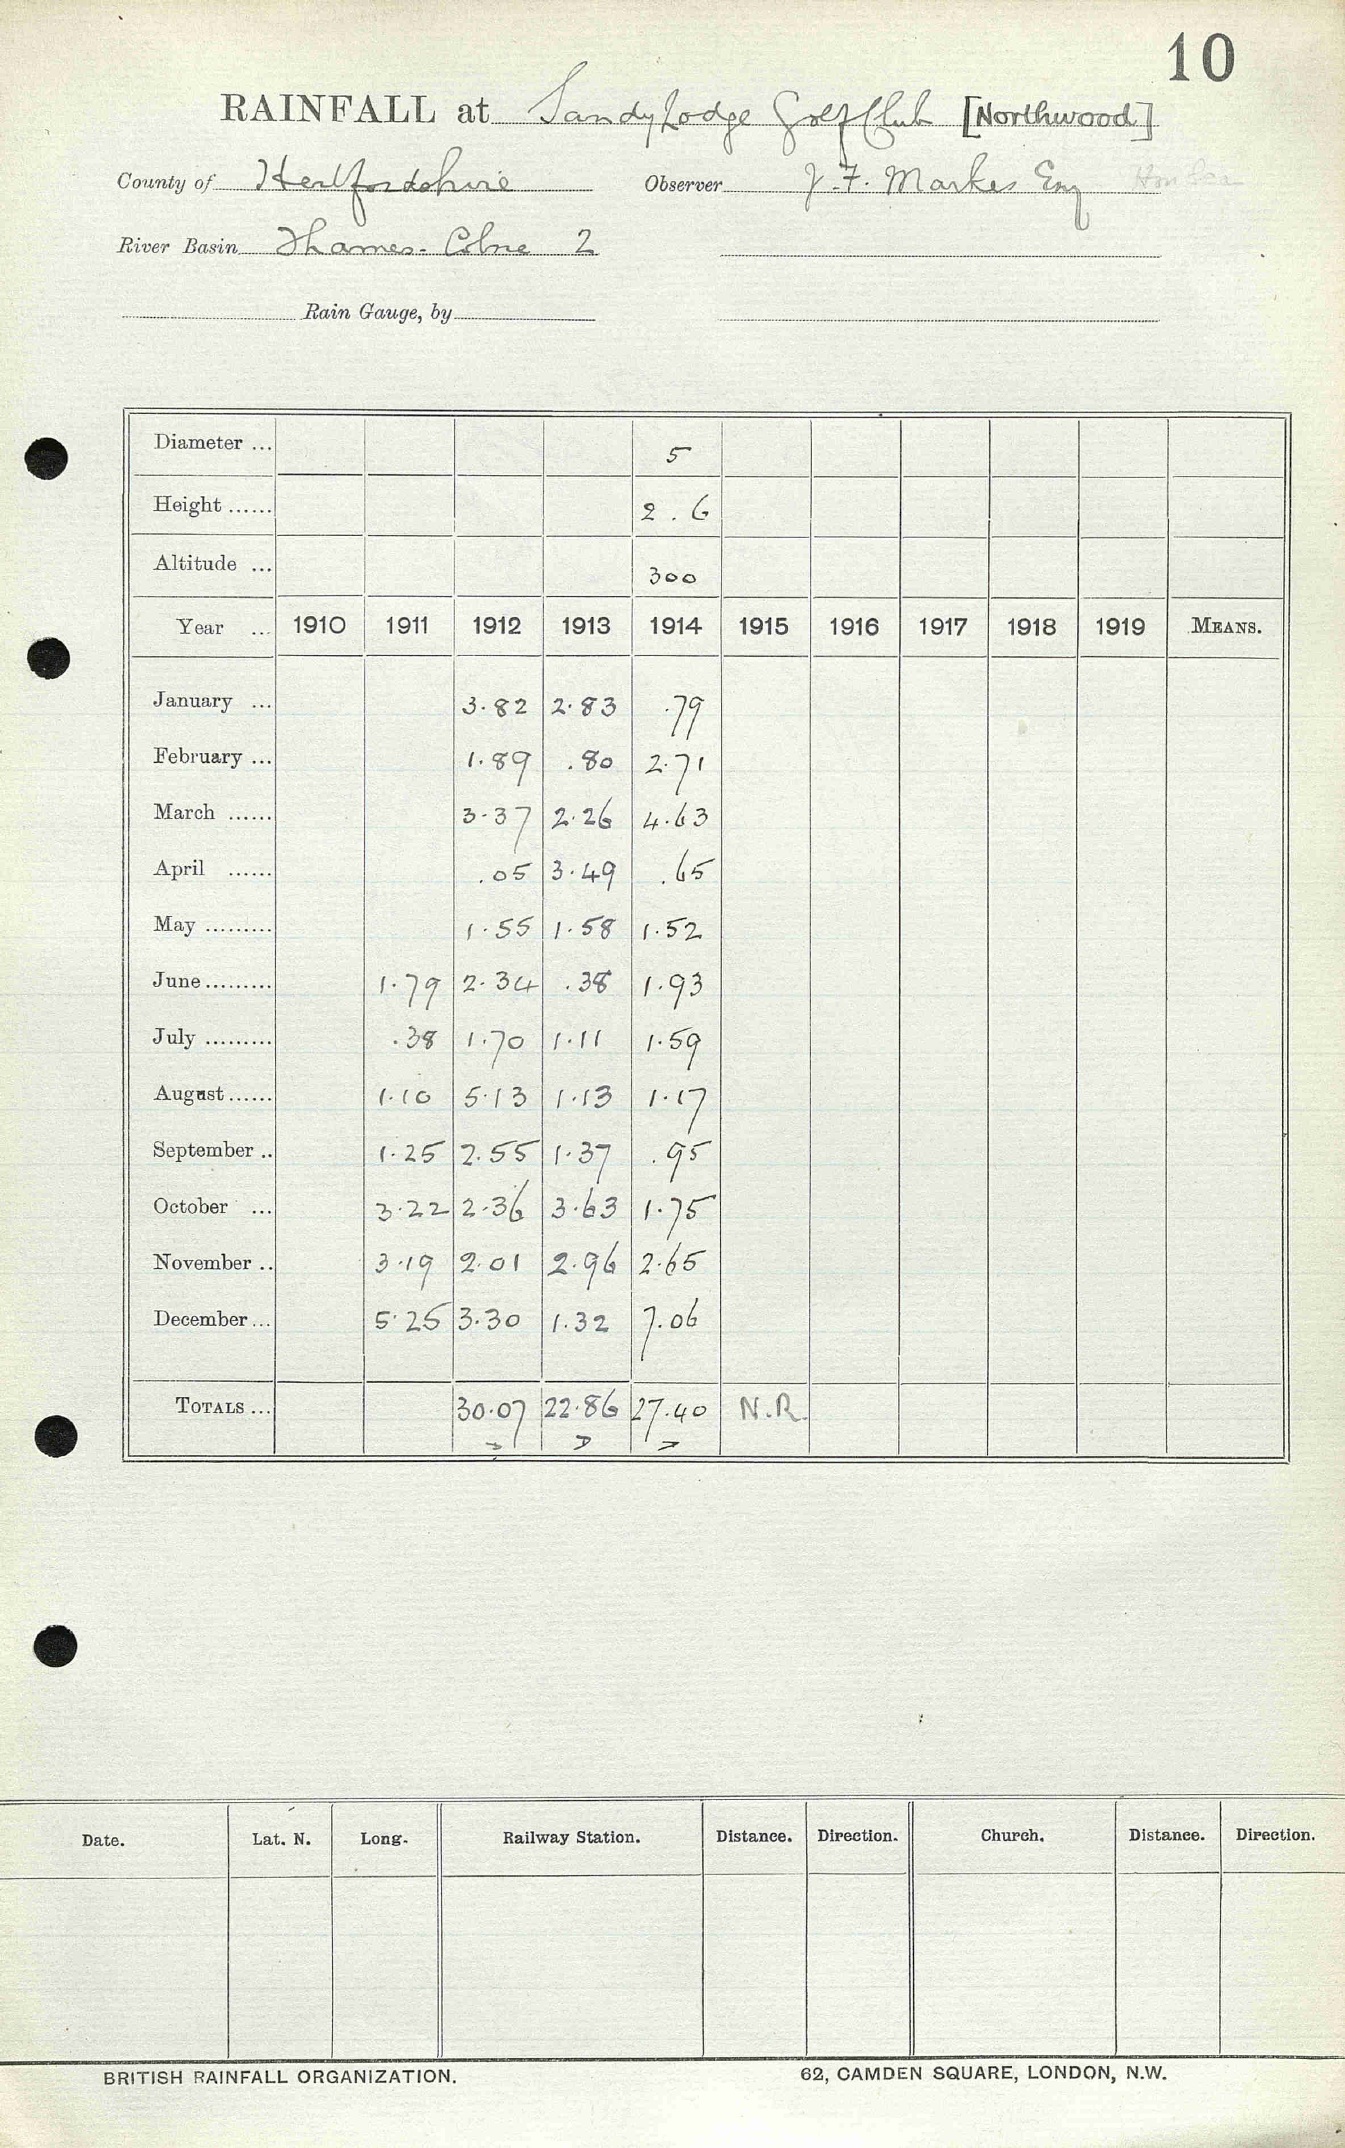 10
RAINFALL at Sandy Lodge Golf Club [Northwood]
County of Hertfordshire Observer J. F. Markes Esq Hon Sec
River Basin Thames - Colne 2
Rain Gauge, by
Diameter ... 5
Height ...... 2 . 6
Altitude ... 300
Year ... 1910 1911 1912 1913 1914 1915 1916 1917 1918 1919 MEANS.
January ... 3.82 2.83 .79
February ... 1.89 .80 2.71
March ...... 3.37 2.26 4.63
April ...... .05 3.49 .65
May ......... 1.55 1.58 1.52
June ......... 1.79 2.34 .38 1.93
July ......... .38 1.70 1.11 1.59
August ...... 1.10 5.13 1.13 1.17
September .. 1.25 2.55 1.37 .95
October ... 3.22 2.36 3.63 1.75
November .. 3.19 2.01 2.96 2.65
December ... 5.25 3.30 1.32 7.06
TOTALS ... 30.07 22.86 27.40 N.R.
Date. Lat. N. Long. Railway Station. Distance. Direction. Church. Distance. Direction.
BRITISH RAINFALL ORGANIZATION. 62, CAMDEN SQUARE, LONDON, N.W.